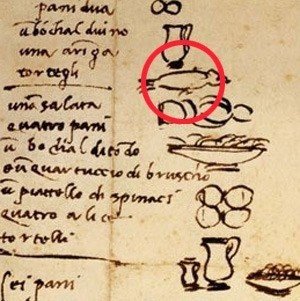 pani dua
u bochal di vino
una aringa
tortegli
una salata
quatro pani
u bochal di todo
e un quartuccio di bruscho
u piattello di spinaci
quatro alice
tortelli
sei pani